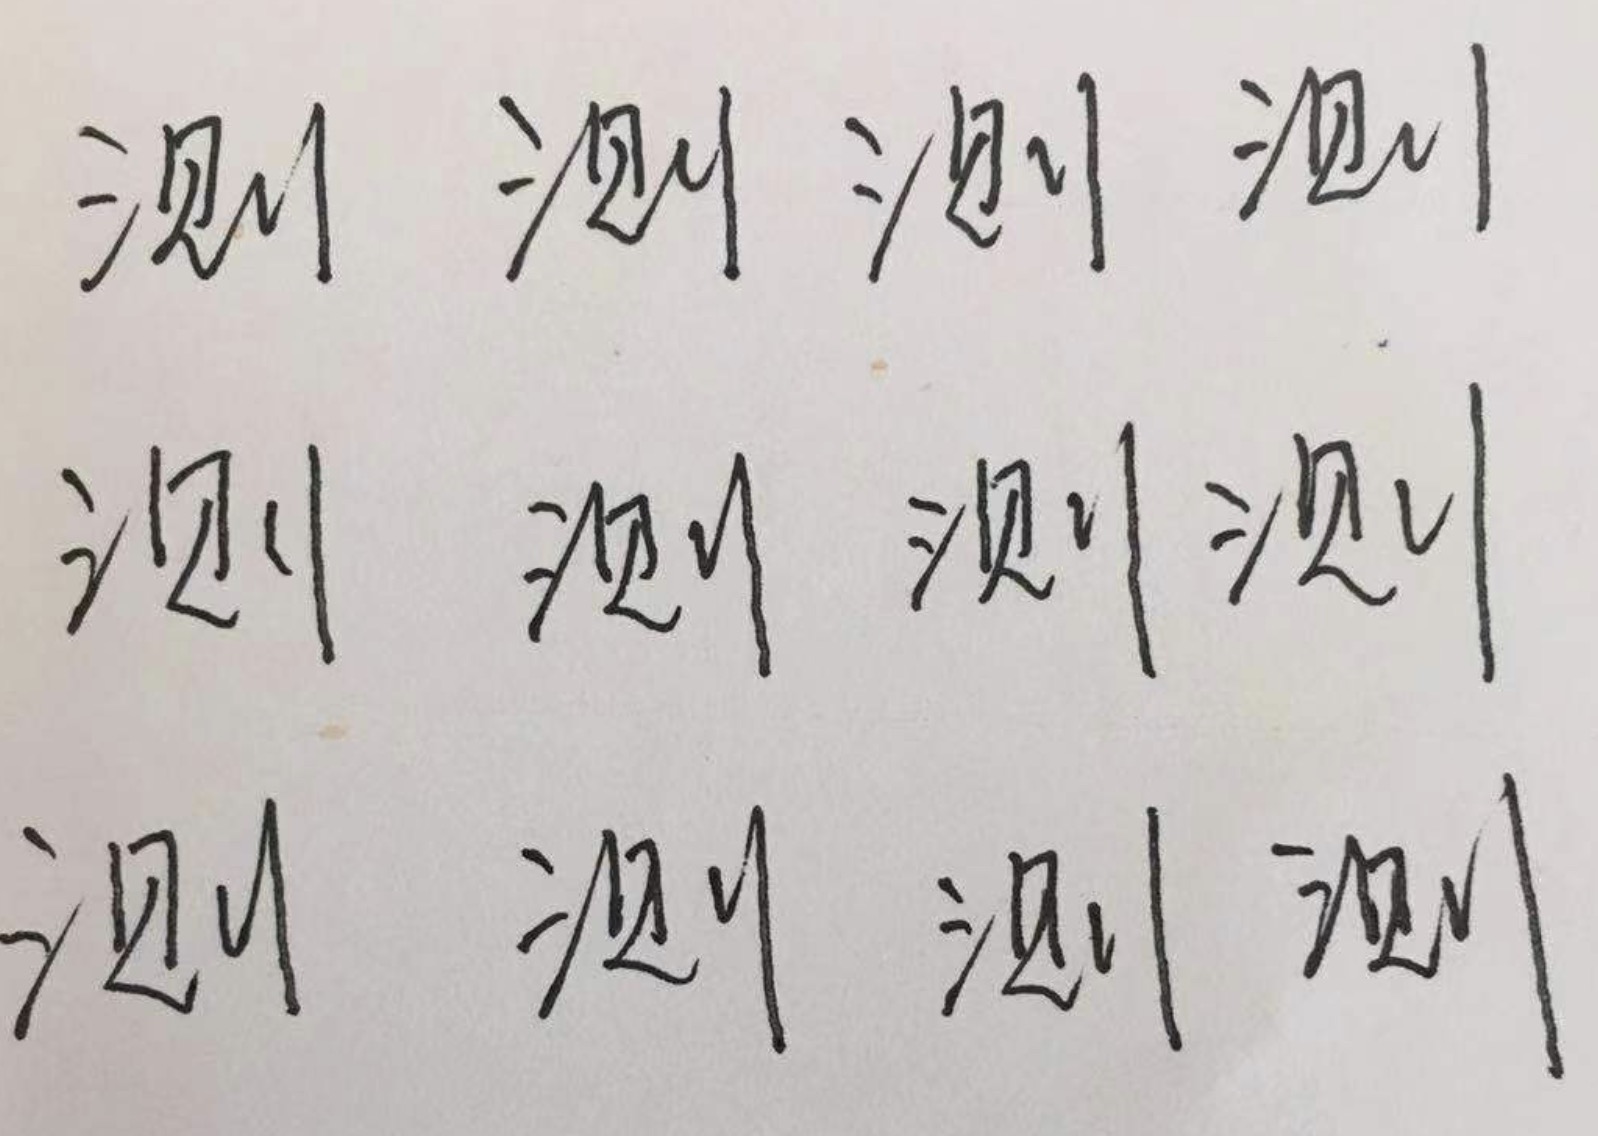 测 测 测 测
测 测 测 测
测 测 测 测